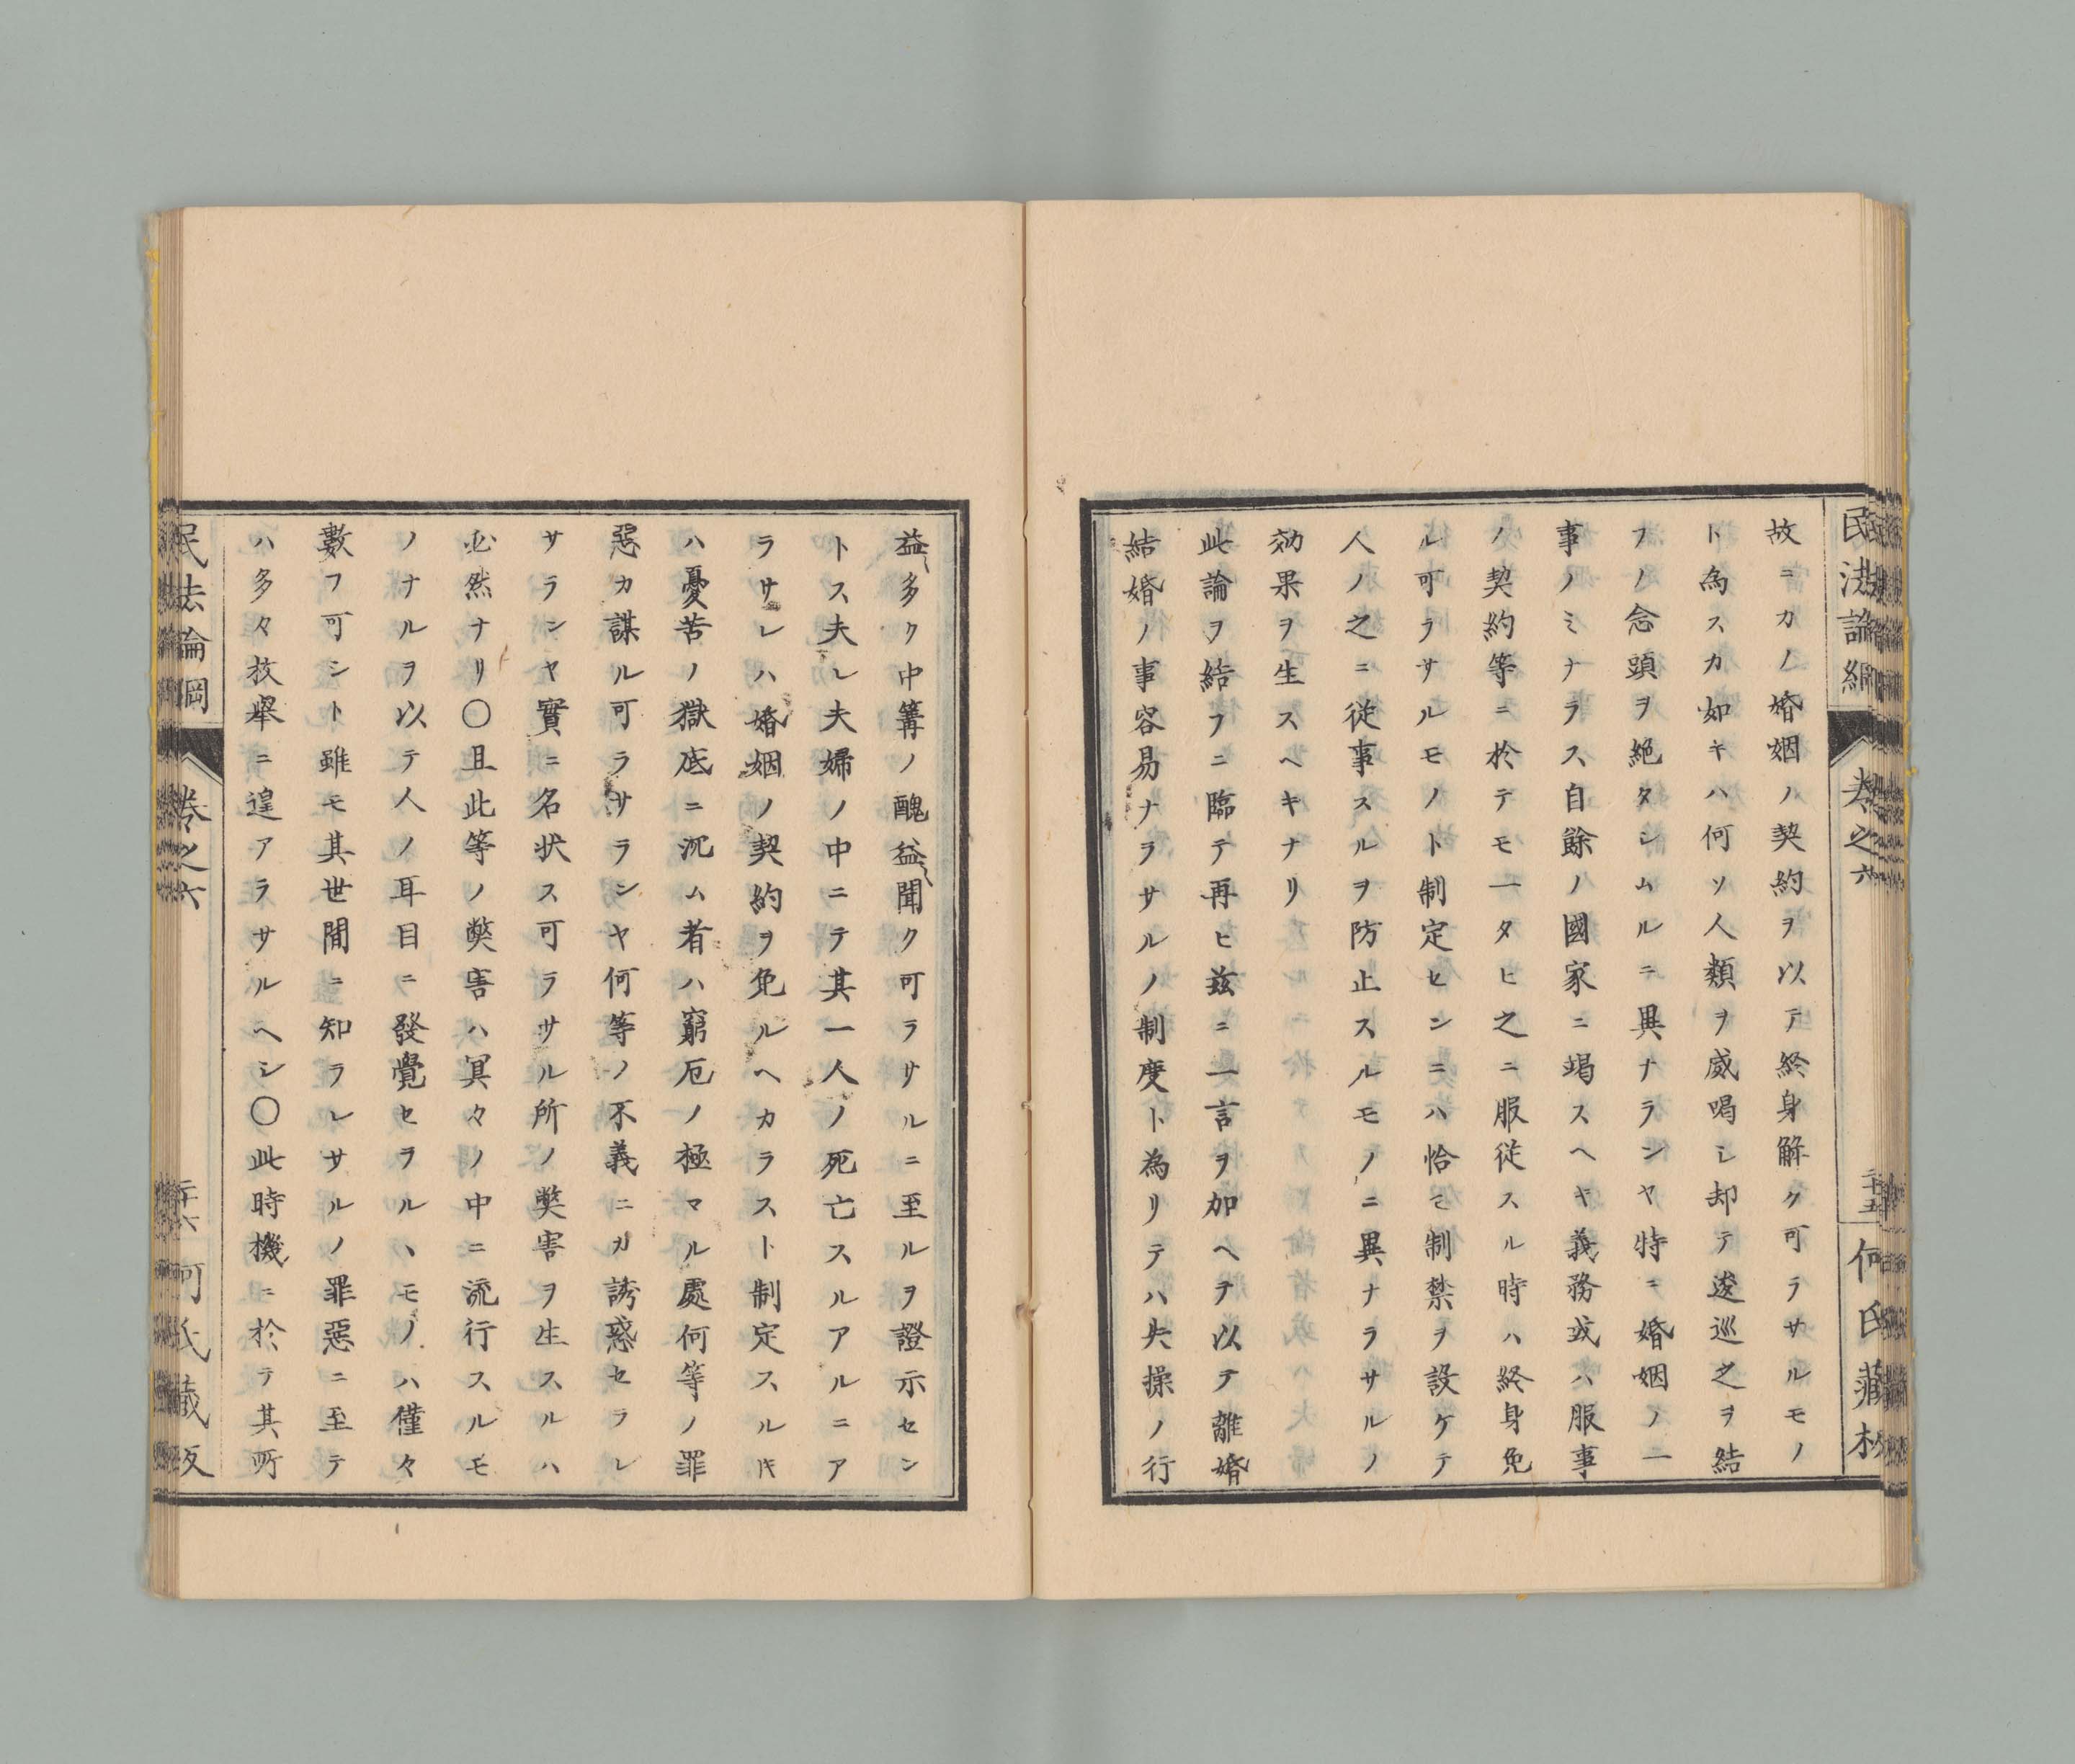 民法論綱 卷之六 二十五 何氏藏板
故ニカノ婚姻ノ契約ヲ以テ終身解ク可ラサルモノ
ト為スカ如キハ何ソ人類ヲ威喝シ却テ逡巡之ヲ結
フノ念頭ヲ絶タシムルニ異ナランヤ特ニ婚姻ノ一
事ノミナラス自餘ノ國家ニ竭スヘキ義務或ハ服事
ノ契約等ニ於テモ一タヒ之ニ服從スル時ハ終身免
ル可ラサルモノト制定センニハ恰モ制禁ヲ設ケテ
人ノ之ニ從事スルヲ防止スルモノニ異ナラサルノ
効果ヲ生スヘキナリ
此論ヲ結フニ臨テ再ヒ茲ニ一言ヲ加ヘヲ以テ離婚
結婚ノ事容易ナラサルノ制度ト為リテハ失操ノ行
益〻多ク中篝ノ醜益〻聞ク可ラサルニ至ルヲ證示セン
トス夫レ夫婦ノ中ニテ其一人ノ死亡スルアルニア
ラサレハ婚姻ノ契約ヲ免ルヘカラスト制定スルキ
ハ憂苦ノ獄底ニ沉ム者ハ窮厄ノ極マル處何等ノ罪
惡カ謀ル可ラサランヤ何等ノ不義ニカ誘惑セラレ
サランヤ實ニ名状ス可ラサル所ノ獘害ヲ生スルハ
必然ナリ〇且此等ノ獘害ハ冥々ノ中ニ流行スルモ
ノナルヲ以テ人ノ耳目ニ發覺セラルヽモノハ僅々
數フ可シト雖モ其世間ニ知ラレサルノ罪惡ニ至テ
ハ多々枚擧ニ遑アラサルヘシ〇此時機ニ於テ其所
民法論綱 卷之六 二十六 何氏藏板